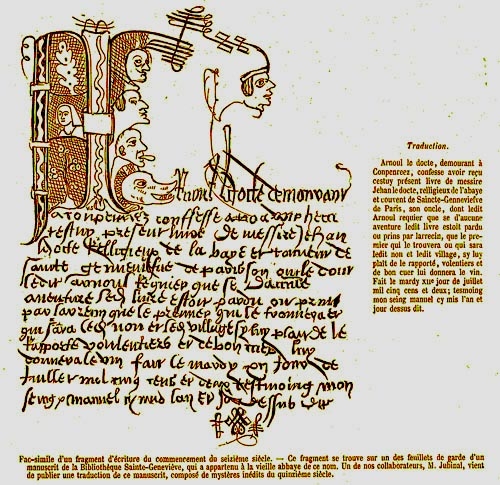 docte demourant
confesse
present livre de messire Jehan
docte de la baye et couvent de
de paris son oncle
ledit arnoul requier que se daucune
aventure livre estoit pardu ou prins
par que le premier qui le trouvera ou
qui sara ledit non et ledit village sy luy plai de le
rapporte voulentiers et de bon cuer luy
fait le mardy jour de
juillet mil cinq cens et deux tesmoing mon
seing manuel cy mis lan et jour dessus dit
Traduction.
Arnoul le docte, demourant à
Conpenrcez, confesse avoir reçu
cestuy présent livre de messire
Jéhan le docte, relligieux de l'abaye
et couvent de Sainte-Genneviefve
de Paris, son oncle, dont ledit
Arnoul requier que se d'aucune
aventure ledit livre estoit pardu
ou prins par larrecin, que le pre-
mier qui le trouvera ou qui sara
ledit non et ledit village, sy luy
plaît de le rapporté, volentiers et
de bon cuer lui donnera le vin.
Fait le mardy XIIe jour de juillet
mil cinq cens et deux; tesmoing
mon seing manuel cy mis l'an et
jour dessus dit.
Fac-simile d'un fragment d'écriture du commencement du seizième siècle. — Ce fragment se trouve sur un des feuillets de garde d'un
manuscrit de la Bibliothèque Sainte-Geneviève, qui a appartenu à la vieille abbaye de ce nom. Un de nos collaborateurs, M. Jubinal, vient
de publier une traduction de ce manuscrit, composé de mystères inédits du quinzième siècle.